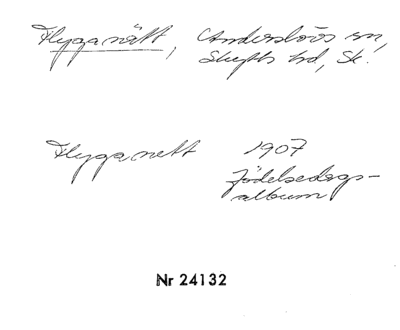 Flyganätt, Anderslövs sn,
Skytts hd, Sk.
Flyganett 1907
Födelsedags-
album
Nr 24132